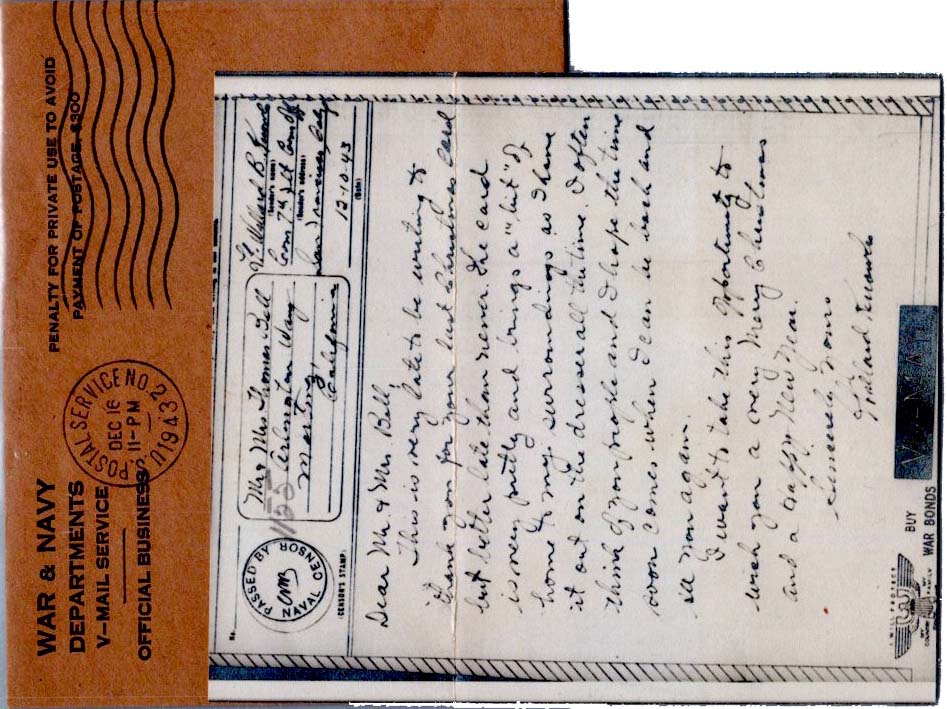 WAR & NAVY
DEPARTMENTS
V-MAIL SERVICE
OFFICIAL BUSINESS
U.S. POSTAL SERVICE NO. 2
DEC 16
11-PM
1943
PENALTY FOR PRIVATE USE TO AVOID
PAYMENT OF POSTAGE, $300
No.
PASSED BY
NAVAL CENSOR
(CENSOR'S STAMP)
Mr & Mrs Thomas Bell
Way
California
Lt. Willard B.
(Sender's name)
(Sender's address)
San Francisco, Calif
12-10-43
(Date)
Dear Mr. & Mrs. Bell,
This is very late to be writing to
thank you for your last Christmas card
but better late than never. The card
is very pretty and brings a "bit" of
home to my surroundings as I have
it out on the dresser all the time. I often
think of you people and I hope the time
soon comes when I can be back and
see you again.
I want to take this opportunity to
wish you a very Merry Christmas
and a Happy New Year.
Sincerely yours
Willard
V-MAIL
I WILL PROTECT
MY COUNTRY
MY FAMILY
BUY
WAR BONDS